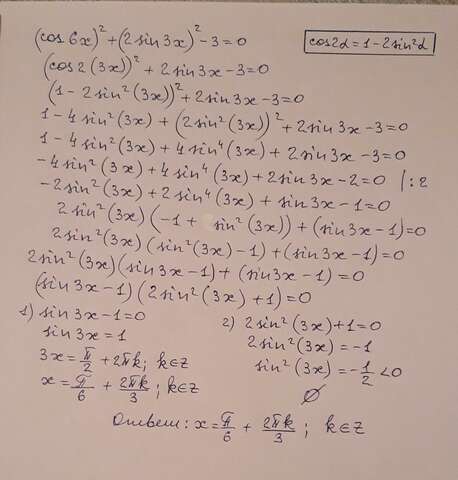 (cos 6x)² + (2 sin 3x)² - 3 = 0
cos2α = 1 - 2 sin²α
(cos 2(3x))² + 2 sin 3x - 3 = 0
(1 - 2 sin²(3x))² + 2 sin 3x - 3 = 0
1 - 4 sin²(3x) + (2 sin²(3x))² + 2 sin 3x - 3 = 0
1 - 4 sin²(3x) + 4 sin⁴(3x) + 2 sin 3x - 3 = 0
-4 sin²(3x) + 4 sin⁴(3x) + 2 sin 3x - 2 = 0 |:2
-2 sin²(3x) + 2 sin⁴(3x) + sin 3x - 1 = 0
2 sin²(3x) (-1 + sin²(3x)) + (sin 3x - 1) = 0
2 sin²(3x) (sin²(3x) - 1) + (sin 3x - 1) = 0
2 sin²(3x) (sin 3x - 1) + (sin 3x - 1) = 0
(sin 3x - 1) (2 sin²(3x) + 1) = 0
1) sin 3x - 1 = 0
sin 3x = 1
3x = π/2 + 2πk; k∈Z
x = π/6 + 2πk/3; k∈Z
2) 2 sin²(3x) + 1 = 0
2 sin²(3x) = -1
sin²(3x) = -1/2 < 0
∅
Ответ: x = π/6 + 2πk/3; k∈Z